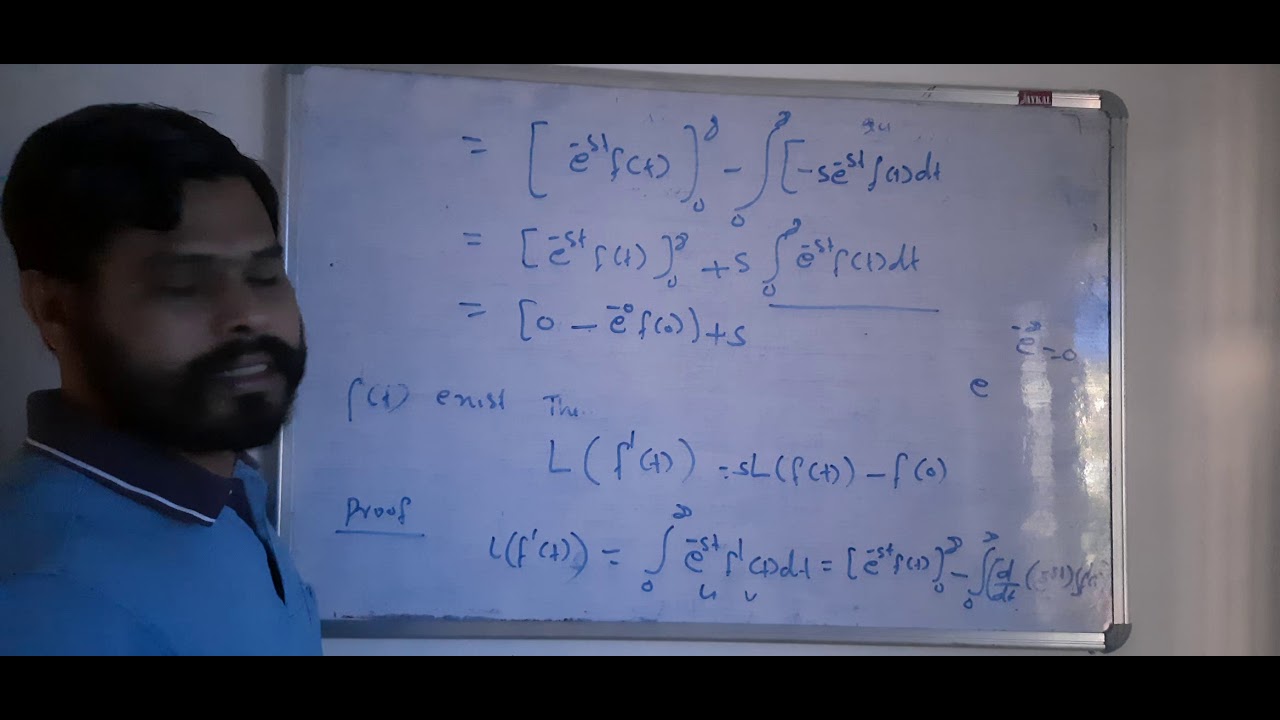 JAYKAL
= [e^-st f(t)]_0^∞ - ∫_0^∞ [-se^-st f(t)dt
= [e^-st f(t)]_0^∞ + s ∫_0^∞ e^-st f(t)dt
= [0 - e^-0 f(0)) + s
e^-∞ = 0
e
f(t) exist The..
L(f'(t)) = sL(f(t)) - f(0)
Proof
L(f'(t)) = ∫_0^∞ e^-st f'(t)dt = [e^-st f(t)]_0^∞ - ∫_0^∞ (d/dt (e^-st) f(t)
u v